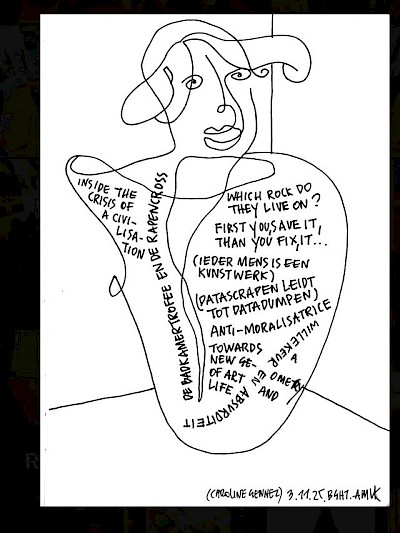 INSIDE THE
CRISIS OF
A CIVI-
LISA-
TION
DE BADKAMERTROFEE EN DE RAPENCROSS
WHICH ROCK DO
THEY LIVE ON?
FIRST YOU,SAVE IT,
THAN YOU FIX,IT...
(IEDER MENS IS EEN
KUNSTWERK)
(DATASCRAPEN LEIDT
TOT DATADUMPEN)
ANTI-MORALISATRICE
TOWARDS
NEW GE-
OF ART
LIFE
AND
A
WILLEKEUR
EN
ABSURDITEIT
(CAROLINE GENNEZ) 3.11.25